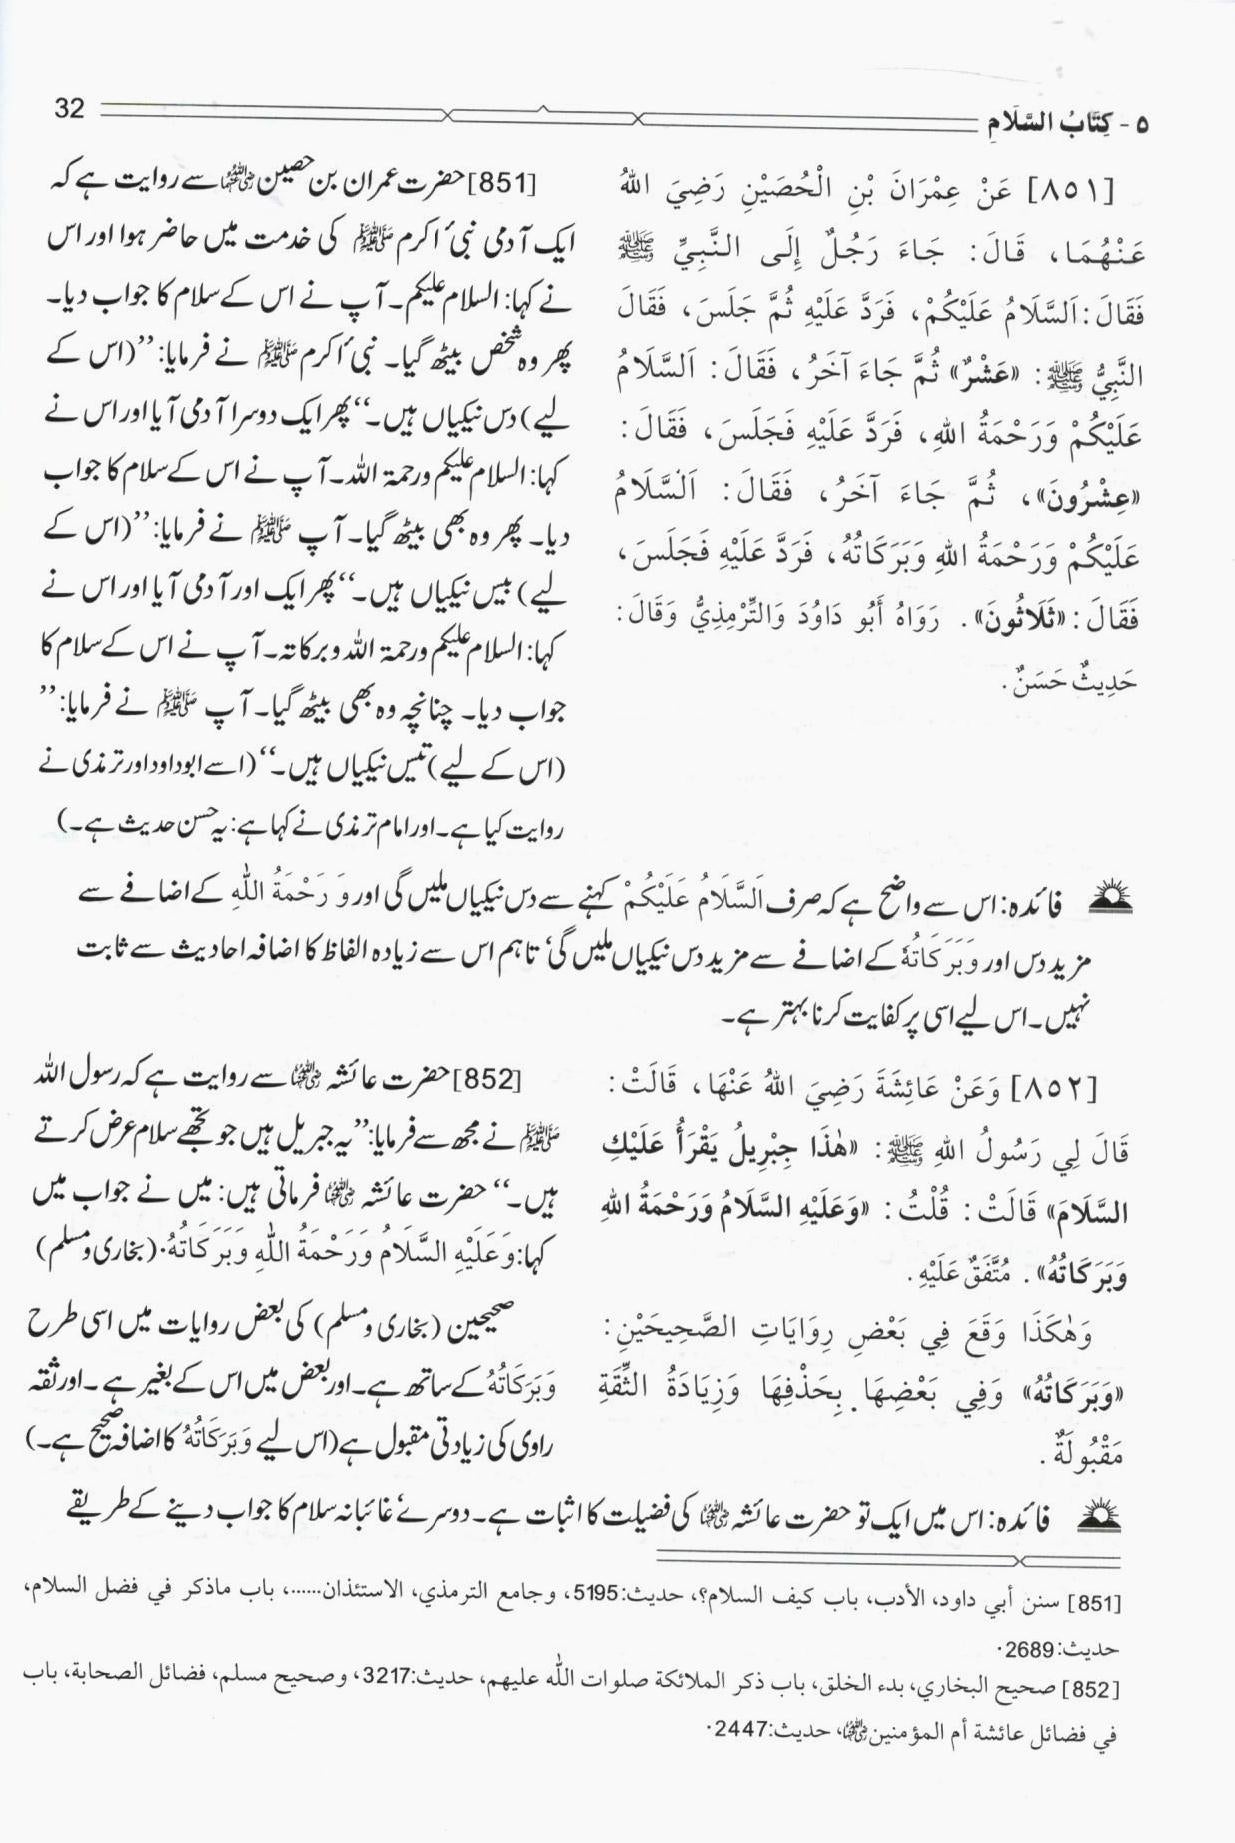 ٥ - كِتَابُ السَّلَامِ
32
[٨٥١] عَنْ عِمْرَانَ بْنِ الْحُصَيْنِ رَضِيَ اللهُ
عَنْهُمَا، قَالَ: جَاءَ رَجُلٌ إِلَى النَّبِيِّ ﷺ
فَقَالَ: اَلسَّلَامُ عَلَيْكُمْ، فَرَدَّ عَلَيْهِ ثُمَّ جَلَسَ، فَقَالَ
النَّبِيُّ ﷺ: «عَشْرٌ» ثُمَّ جَاءَ آخَرُ، فَقَالَ: اَلسَّلَامُ
عَلَيْكُمْ وَرَحْمَةُ اللهِ، فَرَدَّ عَلَيْهِ فَجَلَسَ، فَقَالَ:
«عِشْرُونَ»، ثُمَّ جَاءَ آخَرُ، فَقَالَ: اَلسَّلَامُ
عَلَيْكُمْ وَرَحْمَةُ اللهِ وَبَرَكَاتُهُ، فَرَدَّ عَلَيْهِ فَجَلَسَ،
فَقَالَ: «ثَلَاثُونَ». رَوَاهُ أَبُو دَاوُدَ وَالتِّرْمِذِيُّ وَقَالَ:
حَدِيثٌ حَسَنٌ.
[851] حضرت عمران بن حصین ؓ سے روایت ہے کہ
ایک آدمی نبیٔ اکرم ﷺ کی خدمت میں حاضر ہوا اور اس
نے کہا: السلام علیکم۔ آپ نے اس کے سلام کا جواب دیا۔
پھر وہ شخص بیٹھ گیا۔ نبیٔ اکرم ﷺ نے فرمایا: ’’(اس کے
لیے) دس نیکیاں ہیں۔‘‘ پھر ایک دوسرا آدمی آیا اور اس نے
کہا: السلام علیکم ورحمۃ اللہ۔ آپ نے اس کے سلام کا جواب
دیا۔ پھر وہ بھی بیٹھ گیا۔ آپ ﷺ نے فرمایا: ’’(اس کے
لیے) بیس نیکیاں ہیں۔‘‘ پھر ایک اور آدمی آیا اور اس نے
کہا: السلام علیکم ورحمۃ اللہ وبرکاتہ۔ آپ نے اس کے سلام کا
جواب دیا۔ چنانچہ وہ بھی بیٹھ گیا۔ آپ ﷺ نے فرمایا: ’’
(اس کے لیے) تیس نیکیاں ہیں۔‘‘ (اسے ابوداود اور ترمذی نے
روایت کیا ہے۔ اور امام ترمذی نے کہا ہے: یہ حسن حدیث ہے۔)
فائدہ: اس سے واضح ہے کہ صرف اَلسَّلَامُ عَلَيْكُمْ کہنے سے دس نیکیاں ملیں گی اور وَ رَحْمَةُ اللهِ کے اضافے سے
مزید دس اور وَبَرَكَاتُهُ کے اضافے سے مزید دس نیکیاں ملیں گی‘ تاہم اس سے زیادہ الفاظ کا اضافہ احادیث سے ثابت
نہیں۔ اس لیے اسی پر کفایت کرنا بہتر ہے۔
[٨٥٢] وَعَنْ عَائِشَةَ رَضِيَ اللهُ عَنْهَا، قَالَتْ:
قَالَ لِي رَسُولُ اللهِ ﷺ: «هٰذَا جِبْرِيلُ يَقْرَأُ عَلَيْكِ
السَّلَامَ» قَالَتْ: قُلْتُ: «وَعَلَيْهِ السَّلَامُ وَرَحْمَةُ اللهِ
وَبَرَكَاتُهُ». مُتَّفَقٌ عَلَيْهِ.
وَهٰكَذَا وَقَعَ فِي بَعْضِ رِوَايَاتِ الصَّحِيحَيْنِ:
«وَبَرَكَاتُهُ» وَفِي بَعْضِهَا بِحَذْفِهَا وَزِيَادَةُ الثِّقَةِ
مَقْبُولَةٌ.
[852] حضرت عائشہ ؓ سے روایت ہے کہ رسول اللہ
ﷺ نے مجھ سے فرمایا: ’’یہ جبریل ہیں جو تجھے سلام عرض کرتے
ہیں۔‘‘ حضرت عائشہ ؓ فرماتی ہیں: میں نے جواب میں
کہا: وَعَلَيْهِ السَّلَامُ وَرَحْمَةُ اللهِ وَبَرَكَاتُهُ. (بخاری ومسلم)
صحیحین (بخاری ومسلم) کی بعض روایات میں اسی طرح
وَبَرَكَاتُهُ کے ساتھ ہے۔ اور بعض میں اس کے بغیر ہے۔ اور ثقہ
راوی کی زیادتی مقبول ہے (اس لیے وَبَرَكَاتُهُ کا اضافہ صحیح ہے۔)
فائدہ: اس میں ایک تو حضرت عائشہ ؓ کی فضیلت کا اثبات ہے۔ دوسرے‘ غائبانہ سلام کا جواب دینے کے طریقے
[851] سنن أبي داود، الأدب، باب كيف السلام؟، حديث:5195، وجامع الترمذي، الاستئذان......، باب ماذكر في فضل السلام،
حديث:2689.
[852] صحيح البخاري، بدء الخلق، باب ذكر الملائكة صلوات الله عليهم، حديث:3217، وصحيح مسلم، فضائل الصحابة، باب
في فضائل عائشة أم المؤمنين ؓ، حديث:2447.